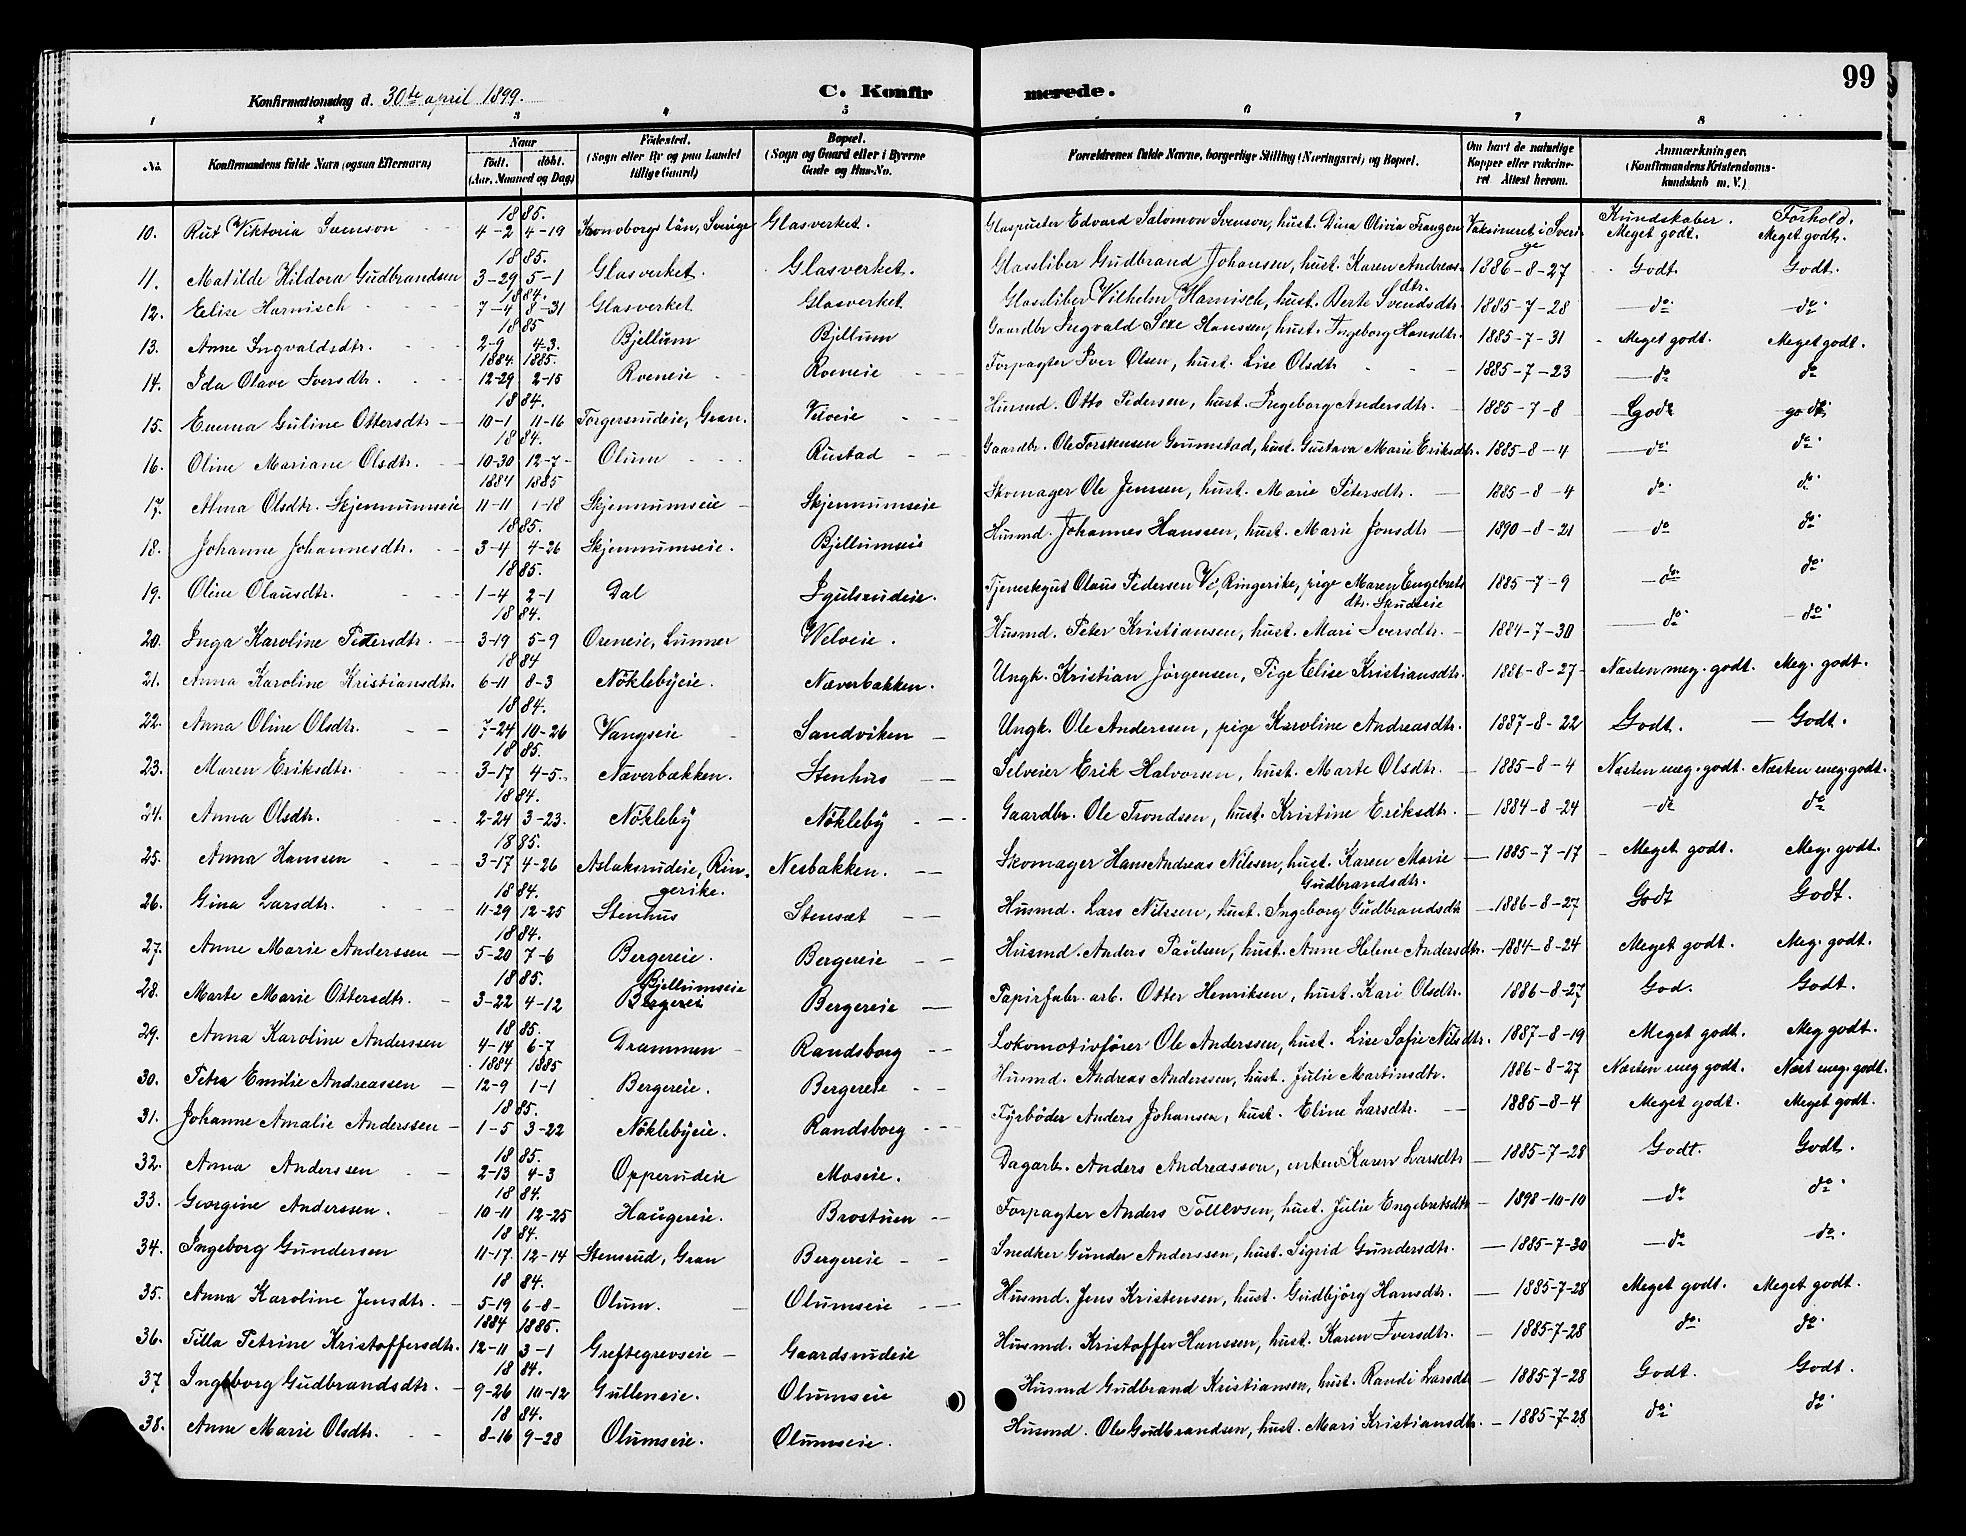 99
Konfirmationsdag d. 30te april 1899. C. Konfirmerede.
1 2 3 4 5 6 7 8
No. Konfirmandens fulde Navn (ogsaa Efternavn) Naar født. døbt. (Aar, Maaned og Dag) Fødested. (Sogn eller By og paa Landet tillige Gaard) Bopæl. (Sogn og Gaard eller i Byerne Gade og Hus-No. Forældrenes fulde Navne, borgerlige Stilling (Næringsvei) og Bopæl. Om havt de naturlige Kopper eller vaksineret Attest herom. Anmærkninger. (Konfirmandens Kristendomskundskab m. V.)
Kundskaber. Forhold.
10. Rut Viktoria Svenson 1885. 4-2 4-19 län, Sverige Glasverket. Glaspuster Edvard Salomon Svenson, hust. Dina Olivia Vaksineret i Sverige Meget godt. Meget godt.
11. Matilde Hildora Gudbrandsen 1885. 3-29 5-1 Glasverket. Glasverket. Glassliber Gudbrand Johansen, hust. Karen Andreasdtr. 1886-8-27 Godt. Godt.
12. Elise Harnisch 1884. 7-4 8-31 Glasverket Glasverket Glassliber Vilhelm Harnisch, hust. Berte Svendsdtr. 1885-7-28 do do
13. Anne Ingvaldsdtr. 1885 2-9 4-3. Bjellum Bjellum Gaardbr Ingvald Hanssen, hust. Ingeborg Hansdtr. 1885-7-31 Meget godt. Meget godt.
14. Ida Olave Iversdtr. 1884. 1885. 12-29 2-15 Roeneie Roeneie Forpagter Iver Olsen, hust. Lise Olsdtr 1885-7-23 do do
15. Emma Guline Ottersdtr 1884. 10-1 11-16 Torgersrudeie, Gran. Velveie Husmd. Otto Pedersen, hust. Ingeborg Andersdtr. 1885-7-8 Godt godt
16. Oline Mariane Olsdtr. 1884. 10-30 12-7 Olum Rustad Gaardbr. Ole Torstensen Grumstad, hust. Gustava Marie Eriksdtr. 1885-8-4 do do
17. Alma Olsdtr. Skjennumseie 1884 1885 11-11 1-18 Skjennumseie Skjennumseie Skomager Ole Jenssen, hust. Marie Petersdtr. 1885-8-4 do do
18. Johanne Johannesdtr. 1885. 3-4 4-26 Skjennumseie. Bjellumseie Husmd. Johannes Hanssen, hust. Marie Jonsdtr 1890-8-21 do do
19. Oline Olausdtr. 1885. 1-4 2-1 Dal Igulsrudeie. Tjenestgut Olaus Pedersen Ringerike, pige Maren Engebretsdtr. Skudseie 1885-7-9 do do
20. Inga Karoline Petersdtr. 1884. 3-19 5-9 Oreneie, Lunner Velveie. Husmd. Peter Kristiansen, hust. Mari Iversdtr. 1884-7-30 do do
21. Anna Karoline Kristiansdtr. 1884 6-11 8-3 Nöklebyeie. Næverbakken. Ungk. Kristian Jørgensen, Pige Elise Kristiansdtr. 1886-8-27 Næsten meg. godt. Meg. godt.
22. Anna Oline Olsdtr. 1884. 7-24 10-26 Vangseie Sandviken Ungk. Ole Anderssen, pige Karoline Andreasdtr. 1887-8-22 Godt. Godt.
23. Maren Eriksdtr. 1885. 3-17 4-5. Næverbækken. Stenhus Selveier Erik Halvorsen, hust. Marte Olsdtr. 1885-8-4 Næsten meg. godt. Næsten meg. godt.
24. Anna Olsdtr. 1884. 2-24 3-23. Nökleby Nökleby Gaardbr. Ole Trondsen, hust. Kristine Eriksdtr. 1884-8-24 do do
25. Anna Hanssen 1885. 3-17 4-26 Aslaksrudeie, Ringerike. Nesbakken. Skomager Hans Andreas Nilssen, hust. Karen Marie Gudbrandsdtr. 1885-7-17 Meget godt. Meg. godt.
26. Gina Larsdtr. 1884. 11-29 12-25 Stenhus Stensæt Husmd. Lars Nilssen, hust. Ingeborg Gudbrandsdtr 1886-8-27 Godt Godt.
27. Anne Marie Anderssen 1884. 5-20 7-6 Bergereie. Bergereie Husmd. Anders Paulsen, hust. Anne Helene Andersdtr. 1884-8-24 Meget godt. Meg. godt.
28. Marte Marie Ottersdtr. 1885. 3-22 4-12 Bjellumseie Bergerei Bergereie Papirfabr. arb. Otter Henriksen, hust. Kari Olsdtr. 1886-8-27 God. Godt.
29. Anna Karoline Anderssen 1885. 4-14 6-7 Drammen Randsborg Lokomotivfører Ole Anderssen, hust. Lise Sofie Nilsdtr. 1887-8-19 Meget godt. Meg godt.
30. Petra Emilie Andreassen 1884 1885 12-9 1-1 Bergereie. Bergereie Husmd. Andreas Anderssen, hust. Julie Martinsdtr. 1886-8-27 Næsten meg godt. Næst meg. godt.
31. Johanne Amalie Anderssen 1885. 1-5 3-22 Nöklebyeie. Randsborg Fyrbøder Anders Johansen, hust. Eline Larsdtr. 1885-8-4 Meget godt. Meget godt.
32. Anna Anderssen 1885. 2-13 4-3 Opperudeie Moseie. Dagarb. Anders Andreassen, enken Karen Larsdtr 1885-7-28 Godt. Godt.
33. Georgine Anderssen. 1884. 10-11 12-25 Haugereie. Brostuen Forpagter Anders Tollevsen, hust. Julie Engebretsdtr 1898-10-10 do do
34. Ingeborg Gundersen 1884. 11-17. 12-14 Stensrud, Gran Bergereie Snedker Gunder Anderssen, hust. Sigrid Gundersdtr. 1885-7-30 do do
35. Anna Karoline Jensdtr. 1884. 5-19 6-8 Olum. Olumseie Husmd. Jens Kristensen, hust. Gudbjörg Hansdtr. 1885-7-28 Meget godt. Meget godt.
36. Tilla Petrine Kristoffersdtr. 1884 1885. 12-11 3-1 Greftegrevseie Gaardsrudeie Husmd. Kristoffer Hanssen, hust. Karen Iversdtr. 1885-7-28 do do
37 Ingeborg Gudbrandsdtr. 1884. 9-26 10-12 Gulleneie. Olumseie Husmd Gudbrand Kristiansen, hust. Randi Larsdtr 1885-7-28 Godt. Godt.
38. Anne Marie Olsdtr. 1884. 8-16 9-28 Olumseie. Olumseie. Husmd. Ole Gudbrandsen, hust. Mari Kristiansdtr. 1885-7-28 do do